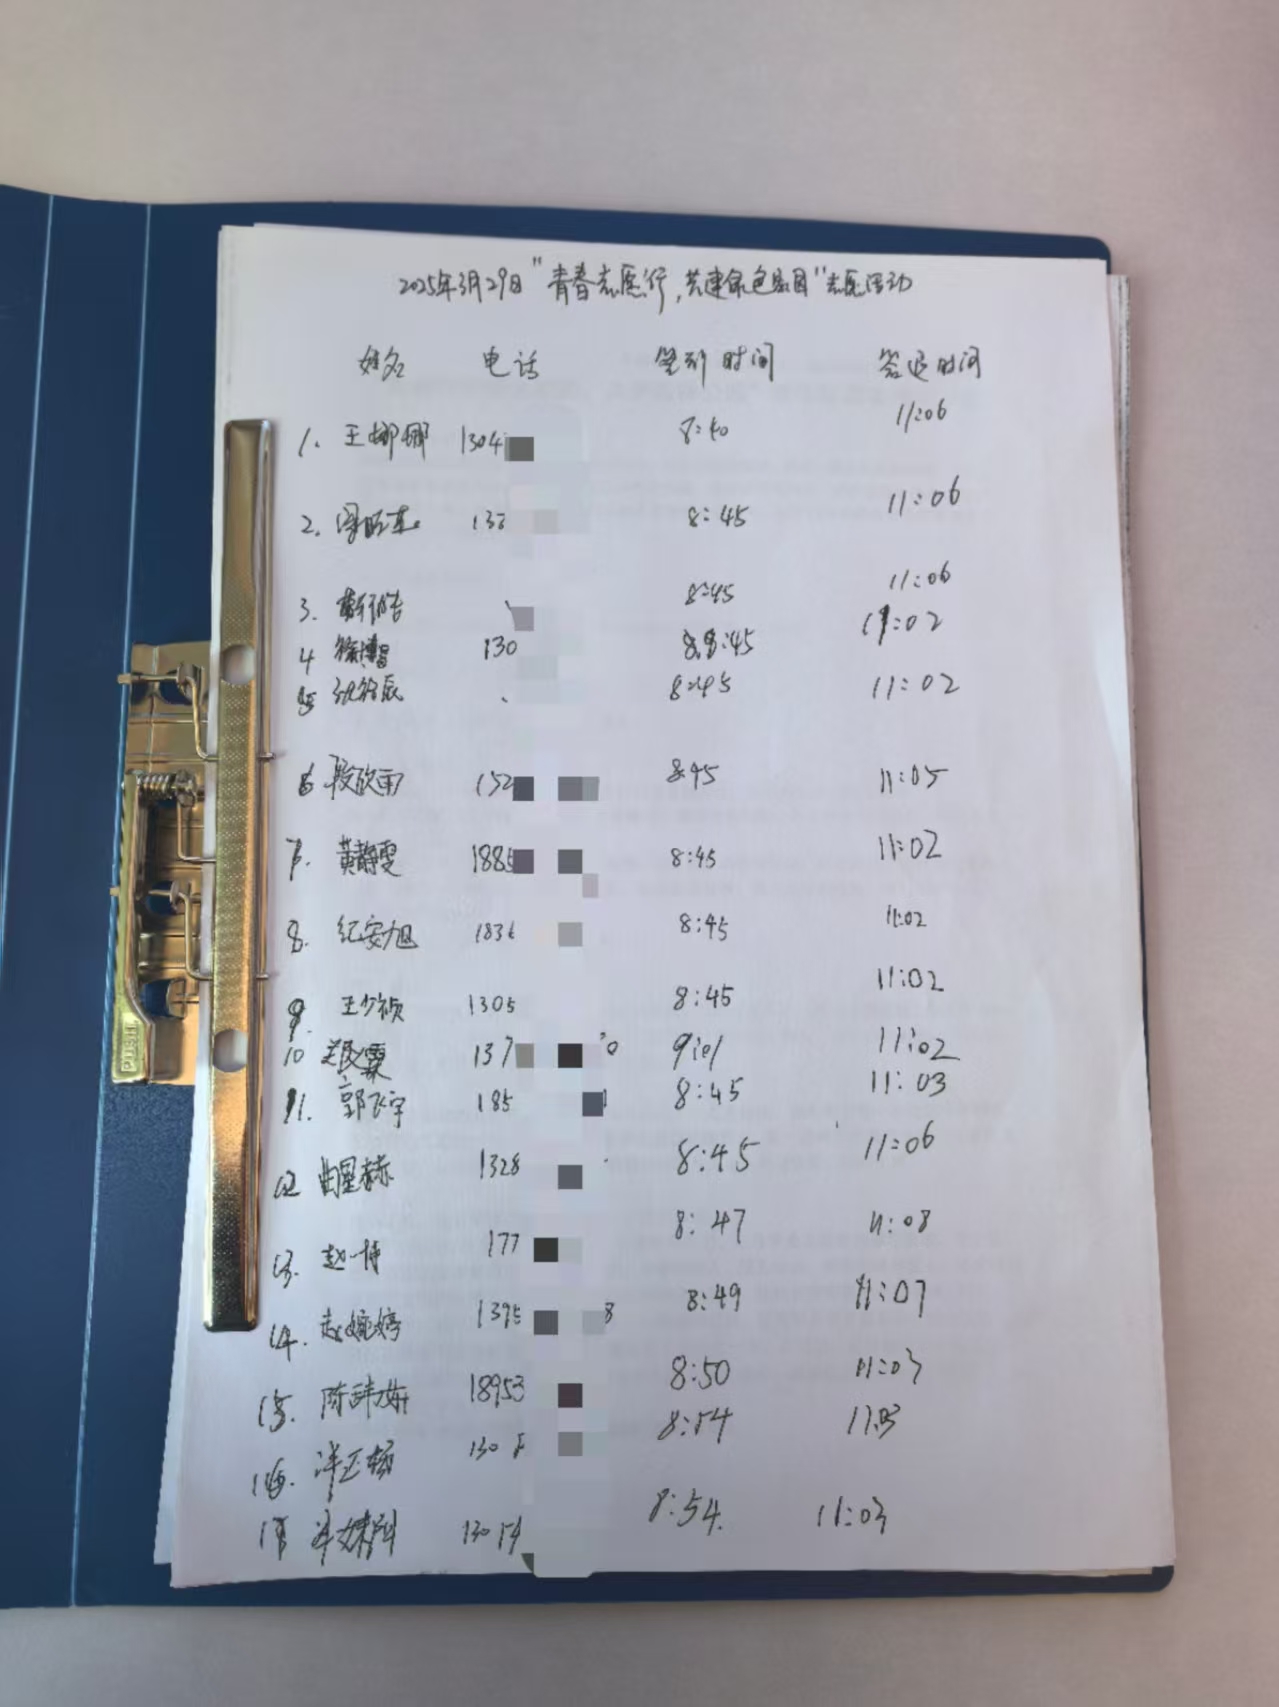 2025年3月29日"青春志愿行,共建绿色家园"志愿活动
姓名 电话 签到时间 签退时间
1. 王娜娜 1304 8:40 11:06
2. 13 8:45 11:06
3. 8:45 11:06
4 徐博 130 8:45 11:02
5 8:45 11:02
6 段欣雨 152 8:45 11:05
7. 黄静雯 1885 8:45 11:02
8. 纪安旭 1836 8:45 11:02
9. 王少祯 1305 8:45 11:02
10 霖 137 0 9:01 11:02
11. 郭飞宇 185 8:45 11:03
12 曲星赫 1328 8:45 11:06
13. 赵一博 177 8:47 11:08
14. 赵婉婷 1395 8 8:49 11:07
15. 陈 18953 8:50 11:03
16. 130 8:54 11:03
17 130 8:54. 11:03
PUSH